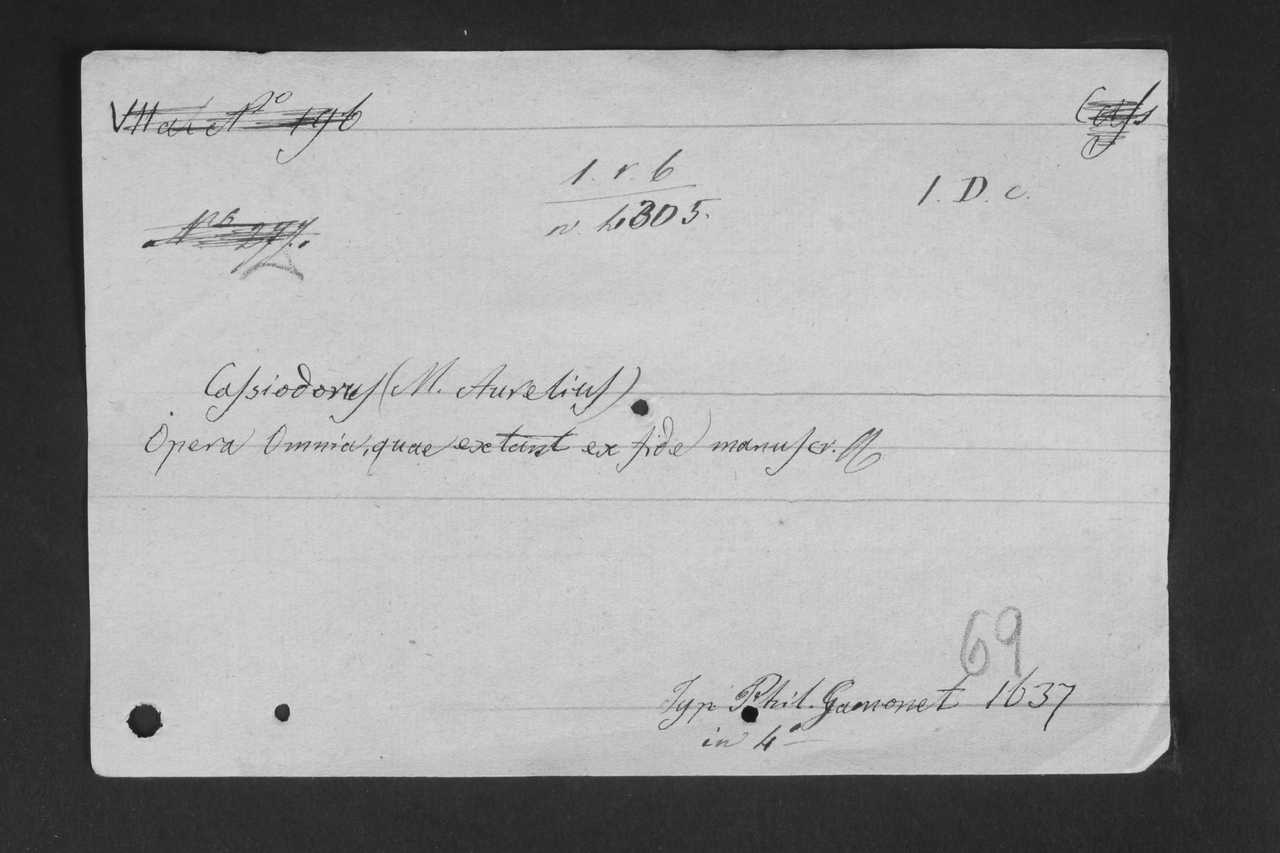 No 196
1. r. 6
n. 4305.
1. D. c.
Nr 277.
Cassiodorus (M. Aurelius)
Opera Omnia, quae extant ex fide manuscr.
69
Typ Phil. Gamonet 1637
in 4º